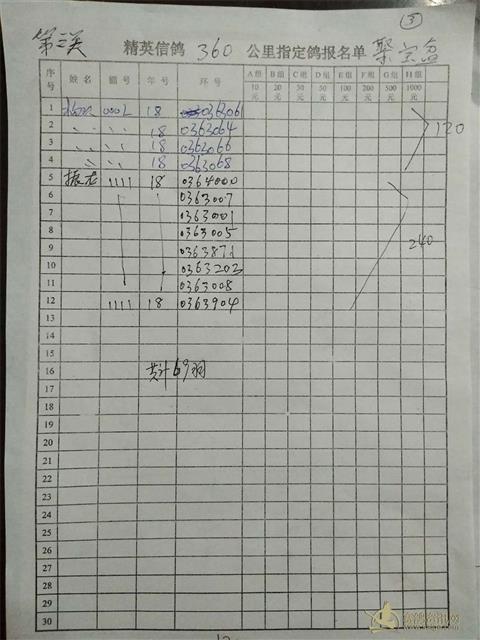 ③
第三关 精英信鸽 360 公里指定鸽报名单 聚宝盆
序号 姓名 棚号 年号 环号 A组10元 B组20元 C组50元 D组50元 E组100元 F组200元 G组500元 H组1000元
1 0002 18 0363061
2 〃 〃 〃 18 0363064
3 〃 〃 〃 18 0363066 120
4 〃 〃 18 0363068
5 振龙 1111 18 0364000
6 0363007
7 0363001
8 0363005 240
9 0363871
10 0363202
11 0363008
12 1111 18 0363904
13
14
15
16 共计69羽
17
18
19
20
21
22
23
24
25
26
27
28
29
30